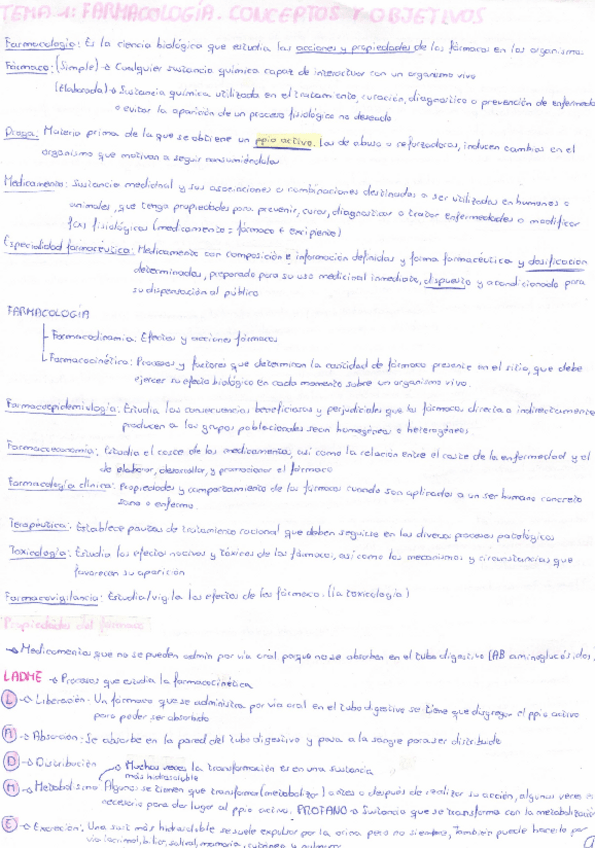 TEMA 1: FARMACOLOGÍA. CONCEPTOS Y OBJETIVOS
Farmacología: Es la ciencia biológica que estudia las acciones y propiedades de los fármacos en los organismos.
Fármaco: (Simple) → Cualquier sustancia química capaz de interactuar con un organismo vivo
(Elaborada) → Sustancia química utilizada en el tratamiento, curación, diagnostico o prevención de enfermedad
o evitar la aparición de un proceso fisiológico no deseado
Droga: Materia prima de la que se obtiene un ppio activo. Las de abuso o reforzadoras, inducen cambios en el
organismo que motivan a seguir consumiéndolas
Medicamento: Sustancia medicinal y sus asociaciones o combinaciones destinadas a ser utilizadas en humanos o
animales, que tenga propiedades para prevenir, curar, diagnosticar o tratar enfermedades o modificar
fxs fisiológicas (medicamento = fármaco + excipiente)
Especialidad farmacéutica: Medicamento con composición e información definidas y forma farmacéutica y dosificación
determinadas, preparado para su uso medicinal inmediato, dispuesto y acondicionado para
su dispensación al público
FARMACOLOGÍA
Farmacodinamia: Efectos y acciones fármacos
Farmacocinética: Procesos y factores que determinan la cantidad de fármaco presente en el sitio, que debe
ejercer su efecto biológico en cada momento sobre un organismo vivo.
Farmacoepidemiología: Estudia las consecuencias beneficiosas y perjudiciales que los fármacos directa o indirectamente
producen a los grupos poblacionales sean homogéneos o heterogéneos.
Farmacoeconomía: Estudia el coste de los medicamentos, así como la relación entre el coste de la enfermedad y el
de elaborar, desarrollar, y promocionar el fármaco
Farmacología clínica: Propiedades y comportamiento de los fármacos cuando son aplicados a un ser humano concreto
sano o enfermo.
Terapéutica: Establece pautas de tratamiento racional que deben seguirse en los diversos procesos patológicos
Toxicología: Estudia los efectos nocivos y tóxicos de los fármacos, así como los mecanismos y circunstancias que
favorecen su aparición
Farmacovigilancia: Estudia/vigila los efectos de los fármacos. (la toxicología)
Propiedades del fármaco
→ Medicamentos que no se pueden admin por vía oral porque no se absorben en el tubo digestivo (AB aminoglucósidos,
LADME → Procesos que estudia la farmacocinética
L → Liberación: Un fármaco que se administra por vía oral en el tubo digestivo se tiene que disgregar el ppio activo
para poder ser absorbido
A → Absorción: Se absorbe en la pared del tubo digestivo y pasa a la sangre para ser distribuido
D → Distribución → Muchas veces la transformación es en una sustancia
más hidrosoluble
M → Metabolismo Algunos se tienen que transformar (metabolizar) antes o después de realizar su acción, algunas veces es
necesario para dar lugar al ppio activo. PROFANO → Sustancia que se transforma con la metabolización
E → Excreción: Una sust más hidrosoluble se suele expulsar por la orina pero no siempre, también puede hacerlo por
vía lacrimal, biliar, salival, mamaria, cutánea y pulmonar